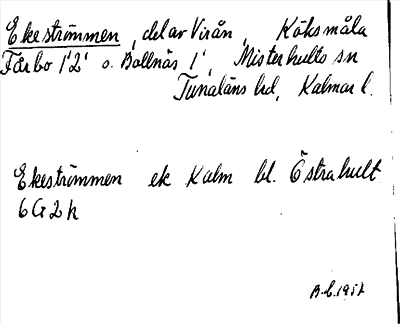 Ekeströmmen, del av Virån, Köksmåla
Fårbo 1'2' o. Bollnäs 1', Misterhults sn
Tunaläns hd, Kalmar l.
Ekeströmmen ek Kalm bl. Östrahult
6G2h